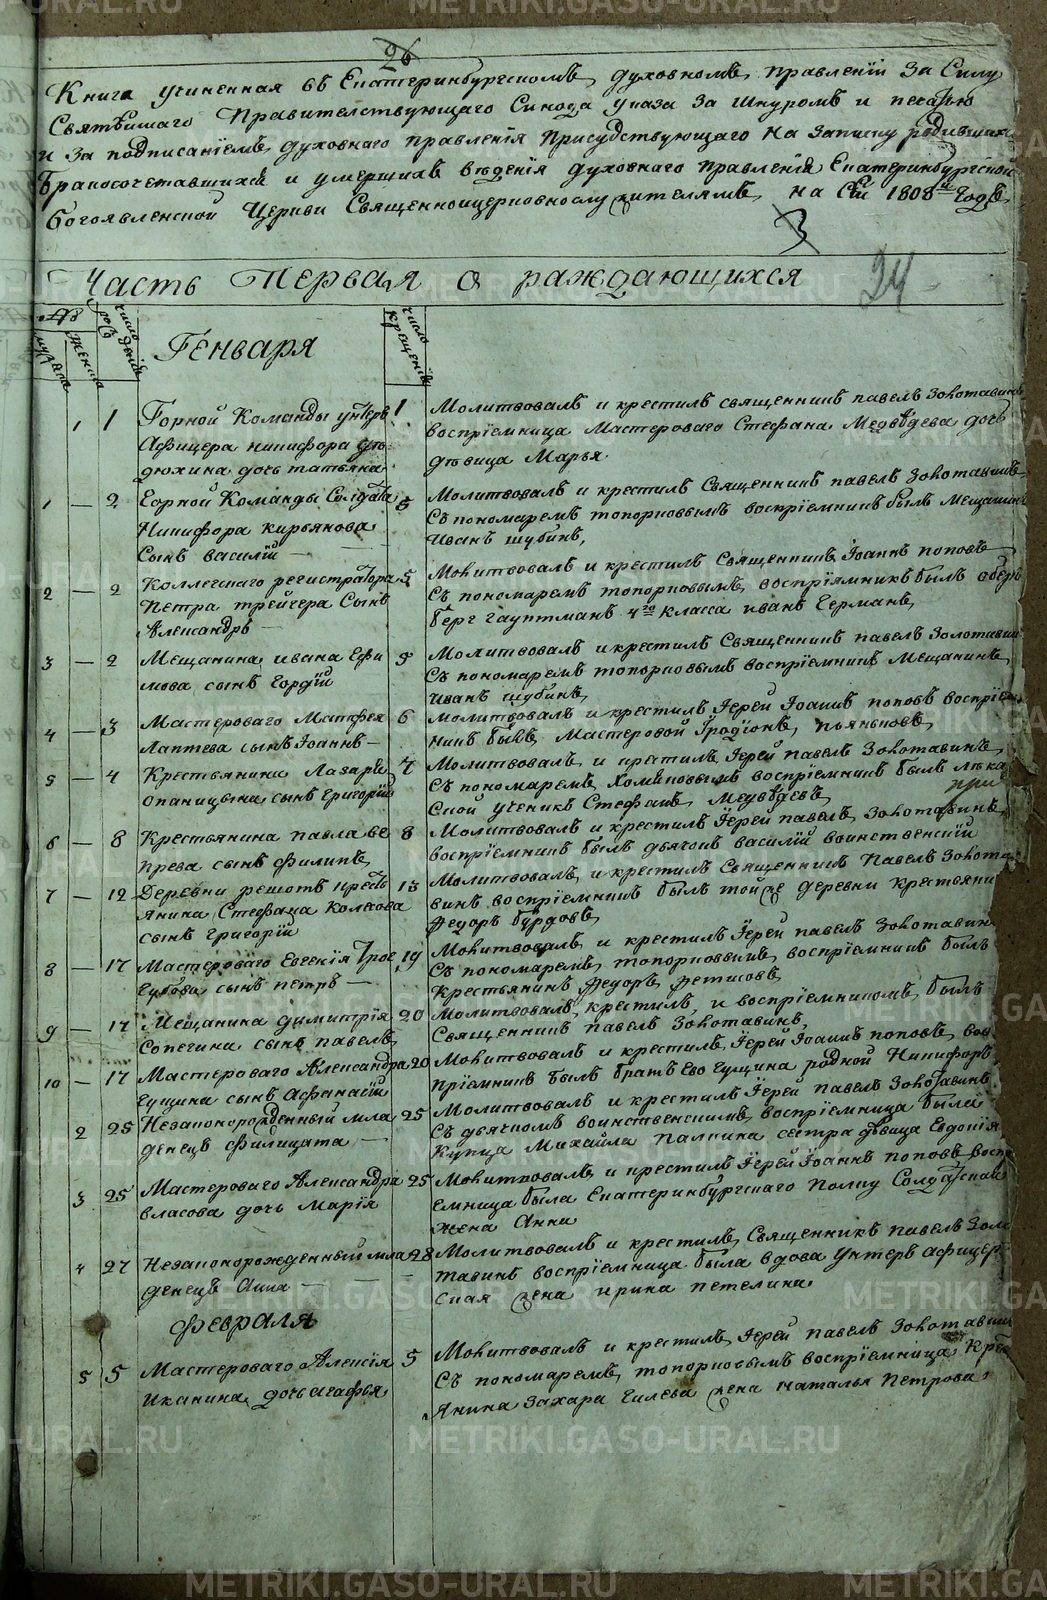 METRIKI.GASO-URAL.RU
26
Книга учиненная въ Екатеринбургскомъ духовномъ правленіи за силу
Святѣйшаго Правителствующаго Синода указа за шнуромъ и печатью
и за подписаніемъ духовнаго правленія присудствующаго на записку родившихся
бракосочетавшихся и умершихъ вѣденія духовнаго правленія Екатеринбургской
Богоявленской Церкви Священноцерковнослужителямъ на сей 1808й годъ
3
Часть Первая о раждающихся
24
число рож денія
мужеска
женска
Генваря
число крещенія
1 1 Горной Команды унтеръ 1
Афицера никифора
дюхина дочь татьяна
Молитвовалъ и крестилъ священникъ павелъ Золотавинъ
воспріемница Мастероваго Стефана Медвѣдева дочь
дѣвица Марья
1 — 2 Горной Команды Солдата
Никифора кирьянова
Сынъ василій —
Молитвовалъ и крестилъ Священникъ павелъ Золотавинъ
Съ пономаремъ топорковымъ воспріемникъ былъ Мещанинъ
Иванъ шубинъ,
2 — 2 Коллегскаго регистратора 5
Петра трейчера Сынъ
Александръ —
Молитвовалъ и крестилъ Священникъ Іоаннъ поповъ
Съ пономаремъ топорковымъ воспріямникъ былъ оберъ
бергъ гауптманъ 4го класса иванъ Германъ,
3 — 2 Мещанина ивана Ефи 5
мова сынъ Гордій
Молитвовалъ и крестилъ Священникъ павелъ Золотавин
Съ пономаремъ топорковымъ воспріемникъ Мещанинъ
Иванъ шубинъ,
4 — 3 Мастероваго Матфея 6
Лаптева сынъ Іоаннъ —
Молитвовалъ и крестилъ Іерей Іоаннъ поповъ воспріем
никъ былъ Мастеровой Иродіонъ пьянковъ,
5 — 4 Крестьянина Лазаря 7
опаницына сынъ григорій
Молитвовалъ и крестилъ Іерей павелъ Золотавинъ
Съ пономаремъ воспріемникъ былъ лѣка
ской ученикъ Стефанъ Медвѣдевъ
при
6 — 8 Крестьянина павла ве 8
прева сынъ филипъ
Молитвовалъ и крестилъ Іерей павелъ Золотавинъ
воспріемникъ былъ дьячокъ василій воинственскій
7 — 12 Деревни решотъ кресть 13
янина Стефана Колкова
сынъ григорій
Молитвовалъ и крестилъ Священникъ Павелъ Золота
винъ воспріемникъ былъ той же деревни крестьяни
федоръ бурдовъ
8 — 17 Мастероваго Евгенія Трое 19
губова сынъ петръ —
Молитвовалъ и крестилъ Іерей павелъ Золотавин
Съ пономаремъ топорковымъ воспріемникъ былъ
крестьянинъ федоръ фетисовъ
9 — 17 Мещанина димитрія 20
Сопегина сынъ павелъ
Молитвовалъ, крестилъ, и воспріемникомъ былъ
Священникъ павелъ Золотавинъ,
10 — 17 Мастероваго Александра 20
Гущина сынъ Афанасій
Молитвовалъ и крестилъ Іерей Іоаннъ поповъ, вос
пріемникъ былъ братъ Его Гущина родной Никифоръ
2 25 Незаконорожденный мла 25
денецъ филицата —
Молитвовалъ и крестилъ Іерей павелъ Золотавинъ
Съ дьячкомъ воинственскимъ воспріемница была
купца Михайла Палкина сестра дѣвица Евдокія
3 25 Мастероваго Александра 25
власова дочь Марія
Молитвовалъ и крестилъ Іерей Іоаннъ поповъ воспр
емница была Екатеринбургскаго Полку Солдатской
жена Анна
4 27 Незаконорожденный мла 28
денецъ Анна — — —
Молитвовалъ и крестилъ Священникъ павелъ Золо
тавинъ воспріемница была вдова унтеръ афицер
ская жена ирина петелина
Февраля
5 5 Мастероваго Алексія 5
Иканина дочь агафья
Молитвовалъ и крестилъ Іерей павелъ Золотавин
Съ пономаремъ топорковымъ воспріемница Крес
янина Захара Гилева жена наталья Петрова.